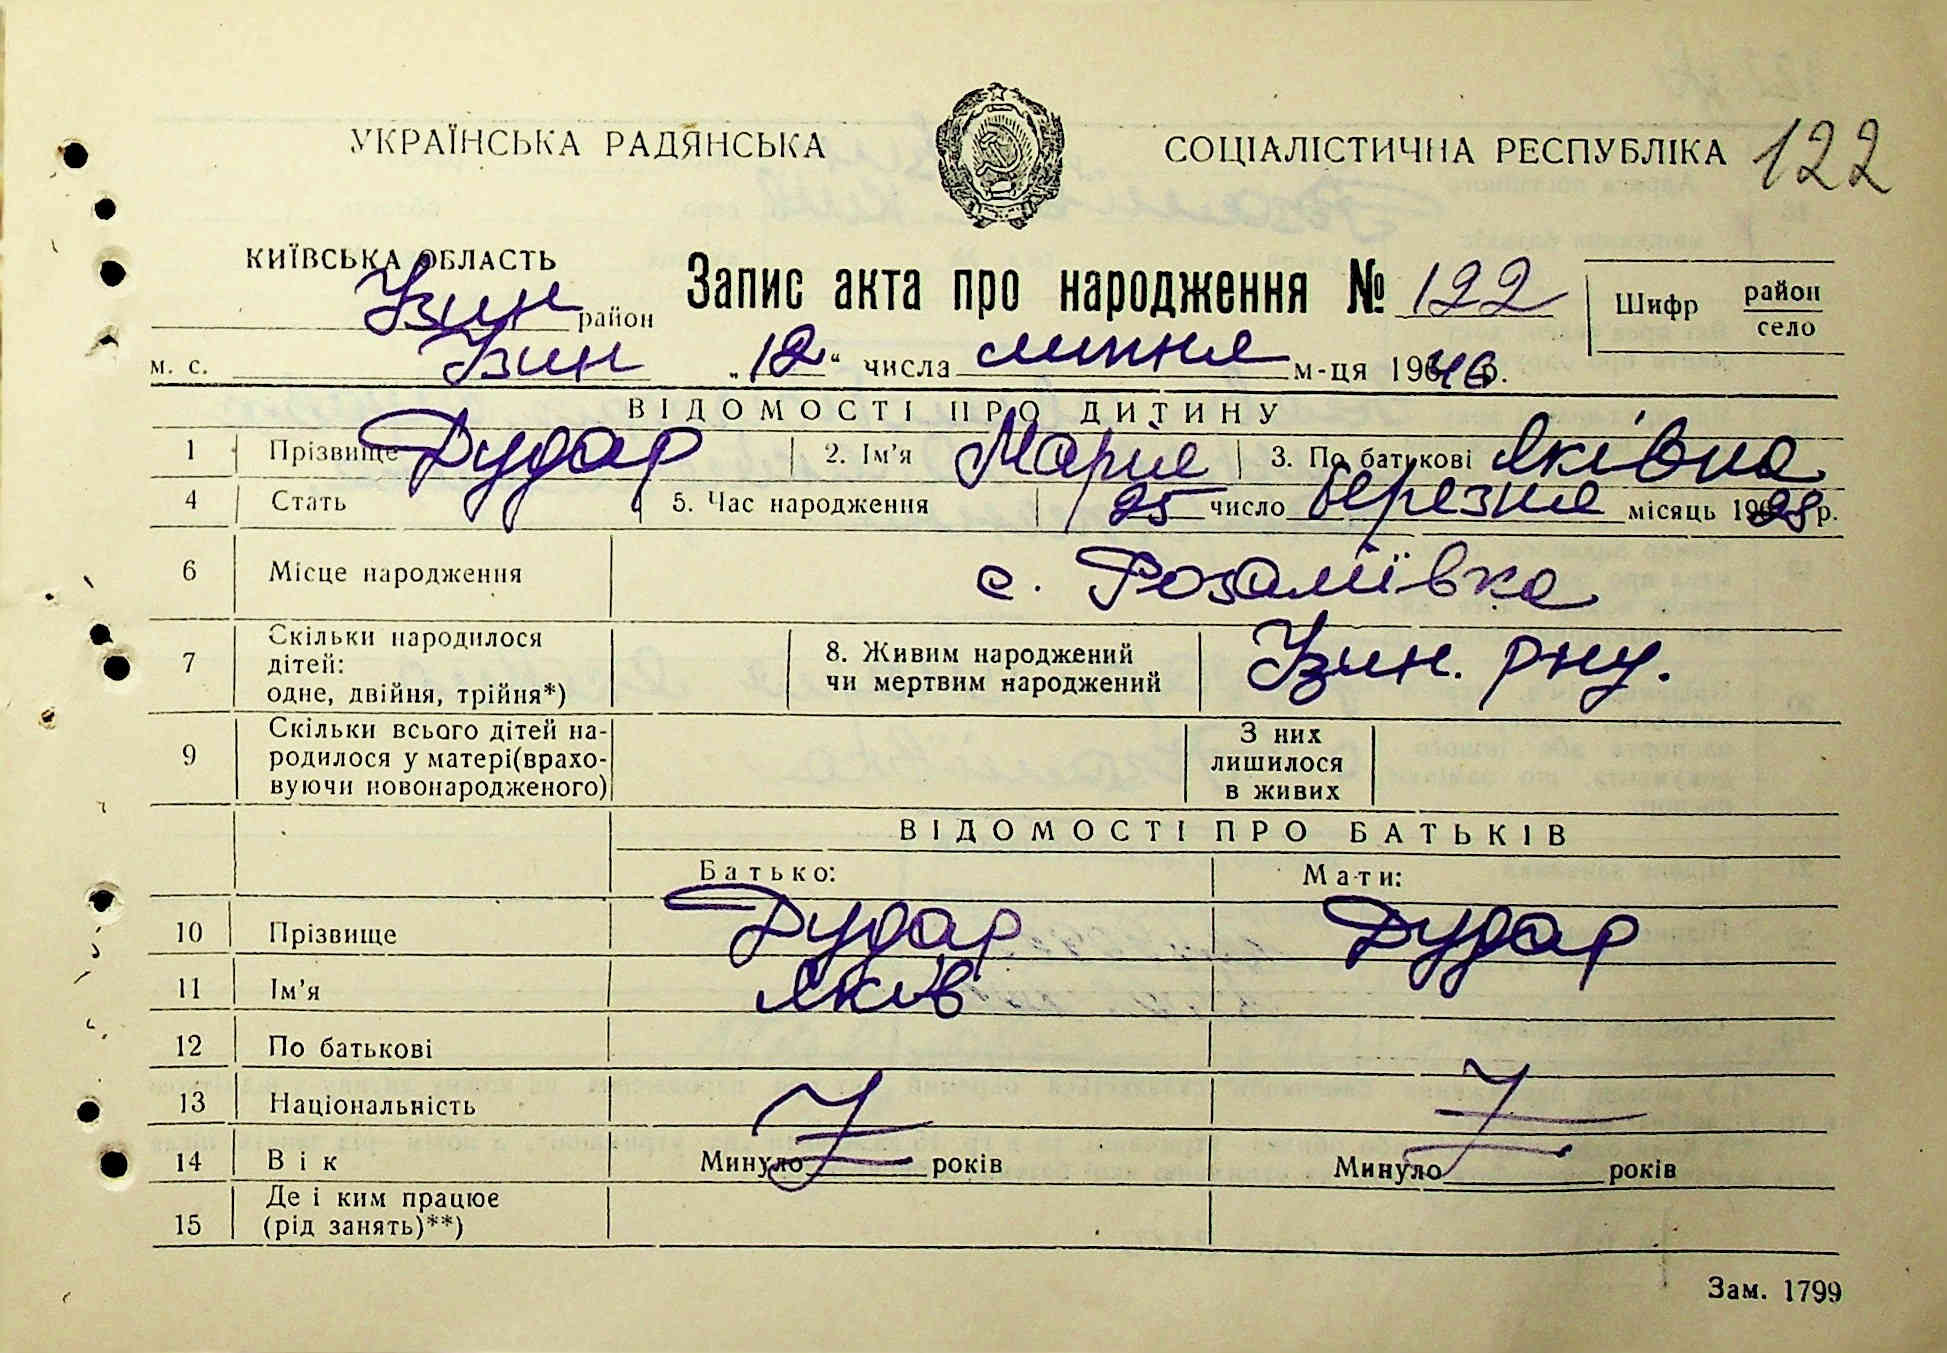 УКРАЇНСЬКА РАДЯНСЬКА СОЦІАЛІСТИЧНА РЕСПУБЛІКА 122
КИЇВСЬКА ОБЛАСТЬ
Запис акта про народження № 122
Шифр район
село
Узин район
м. с. Узин „12“ числа липня м-ця 1946 р.
ВІДОМОСТІ ПРО ДИТИНУ
1 Прізвище Дудар 2. Ім’я Марія 3. По батькові Яківна
4 Стать 5. Час народження 25 число березня місяць 1928 р.
6 Місце народження с. Розаліївка
7 Скільки народилося
дітей:
одне, двійня, трійня*)
8. Живим народжений
чи мертвим народжений
Узин. рну.
9 Скільки всього дітей на-
родилося у матері(врахо-
вуючи новонародженого)
З них
лишилося
в живих
ВІДОМОСТІ ПРО БАТЬКІВ
Батько: Мати:
10 Прізвище Дудар Дудар
11 Ім’я Яків
12 По батькові
13 Національність
14 Вік Минуло років Минуло років
15 Де і ким працює
(рід занять)**)
Зам. 1799